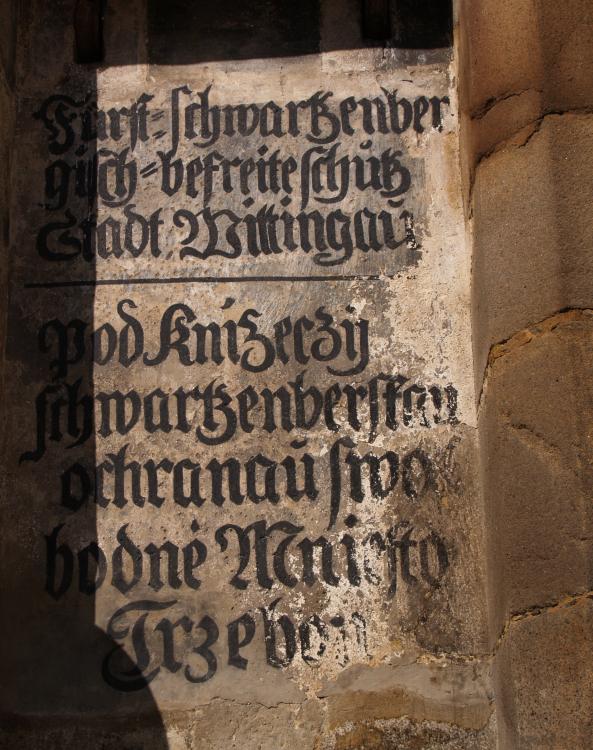 Fürst=schwartzenber
gisch=befreite schütz
Stadt Wittingaŭ
Pod Knižeczÿ
schwartzenberskau
ochranaŭ swo
bodnė Mniesto
Trzebon